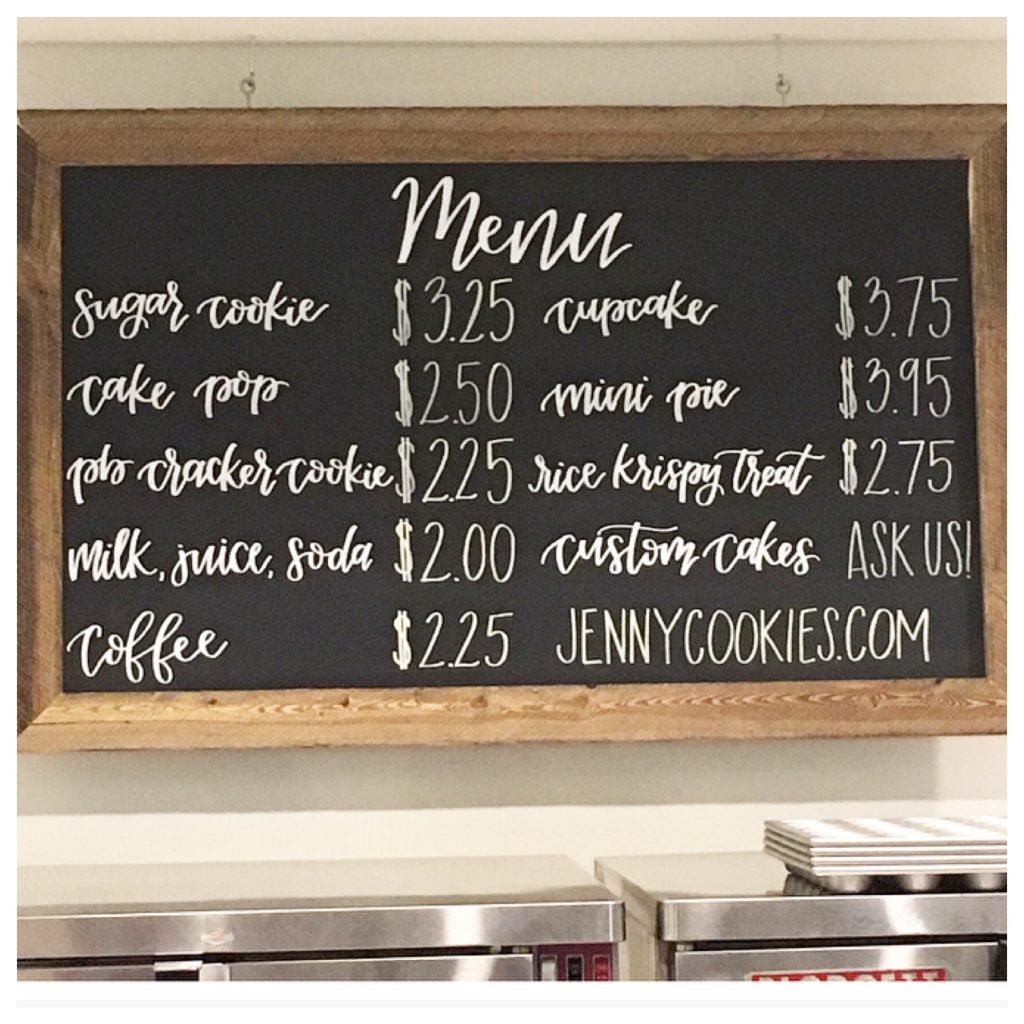 Menu
sugar cookie $3.25 cupcake $3.75
cake pop $2.50 mini pie $3.95
pb cracker cookie $2.25 rice krispy treat $2.75
milk, juice, soda $2.00 custom cakes ASK US!
coffee $2.25 JENNYCOOKIES.COM